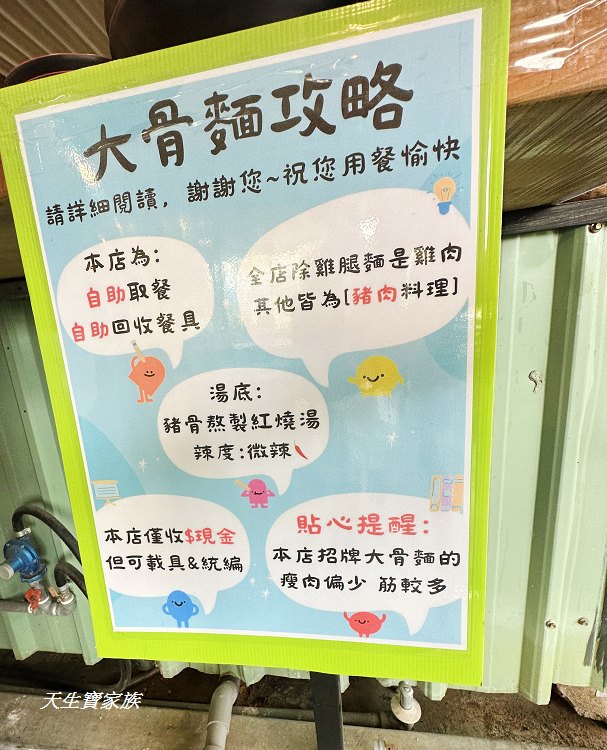 大骨麵攻略
請詳細閱讀，謝謝您~祝您用餐愉快
本店為:
自助取餐
自助回收餐具
全店除雞腿麵是雞肉
其他皆為[豬肉料理]
湯底:
豬骨熬製紅燒湯
辣度:微辣
本店僅收$現金
但可載具&統編
貼心提醒:
本店招牌大骨麵的
瘦肉偏少 筋較多
天生寶家族